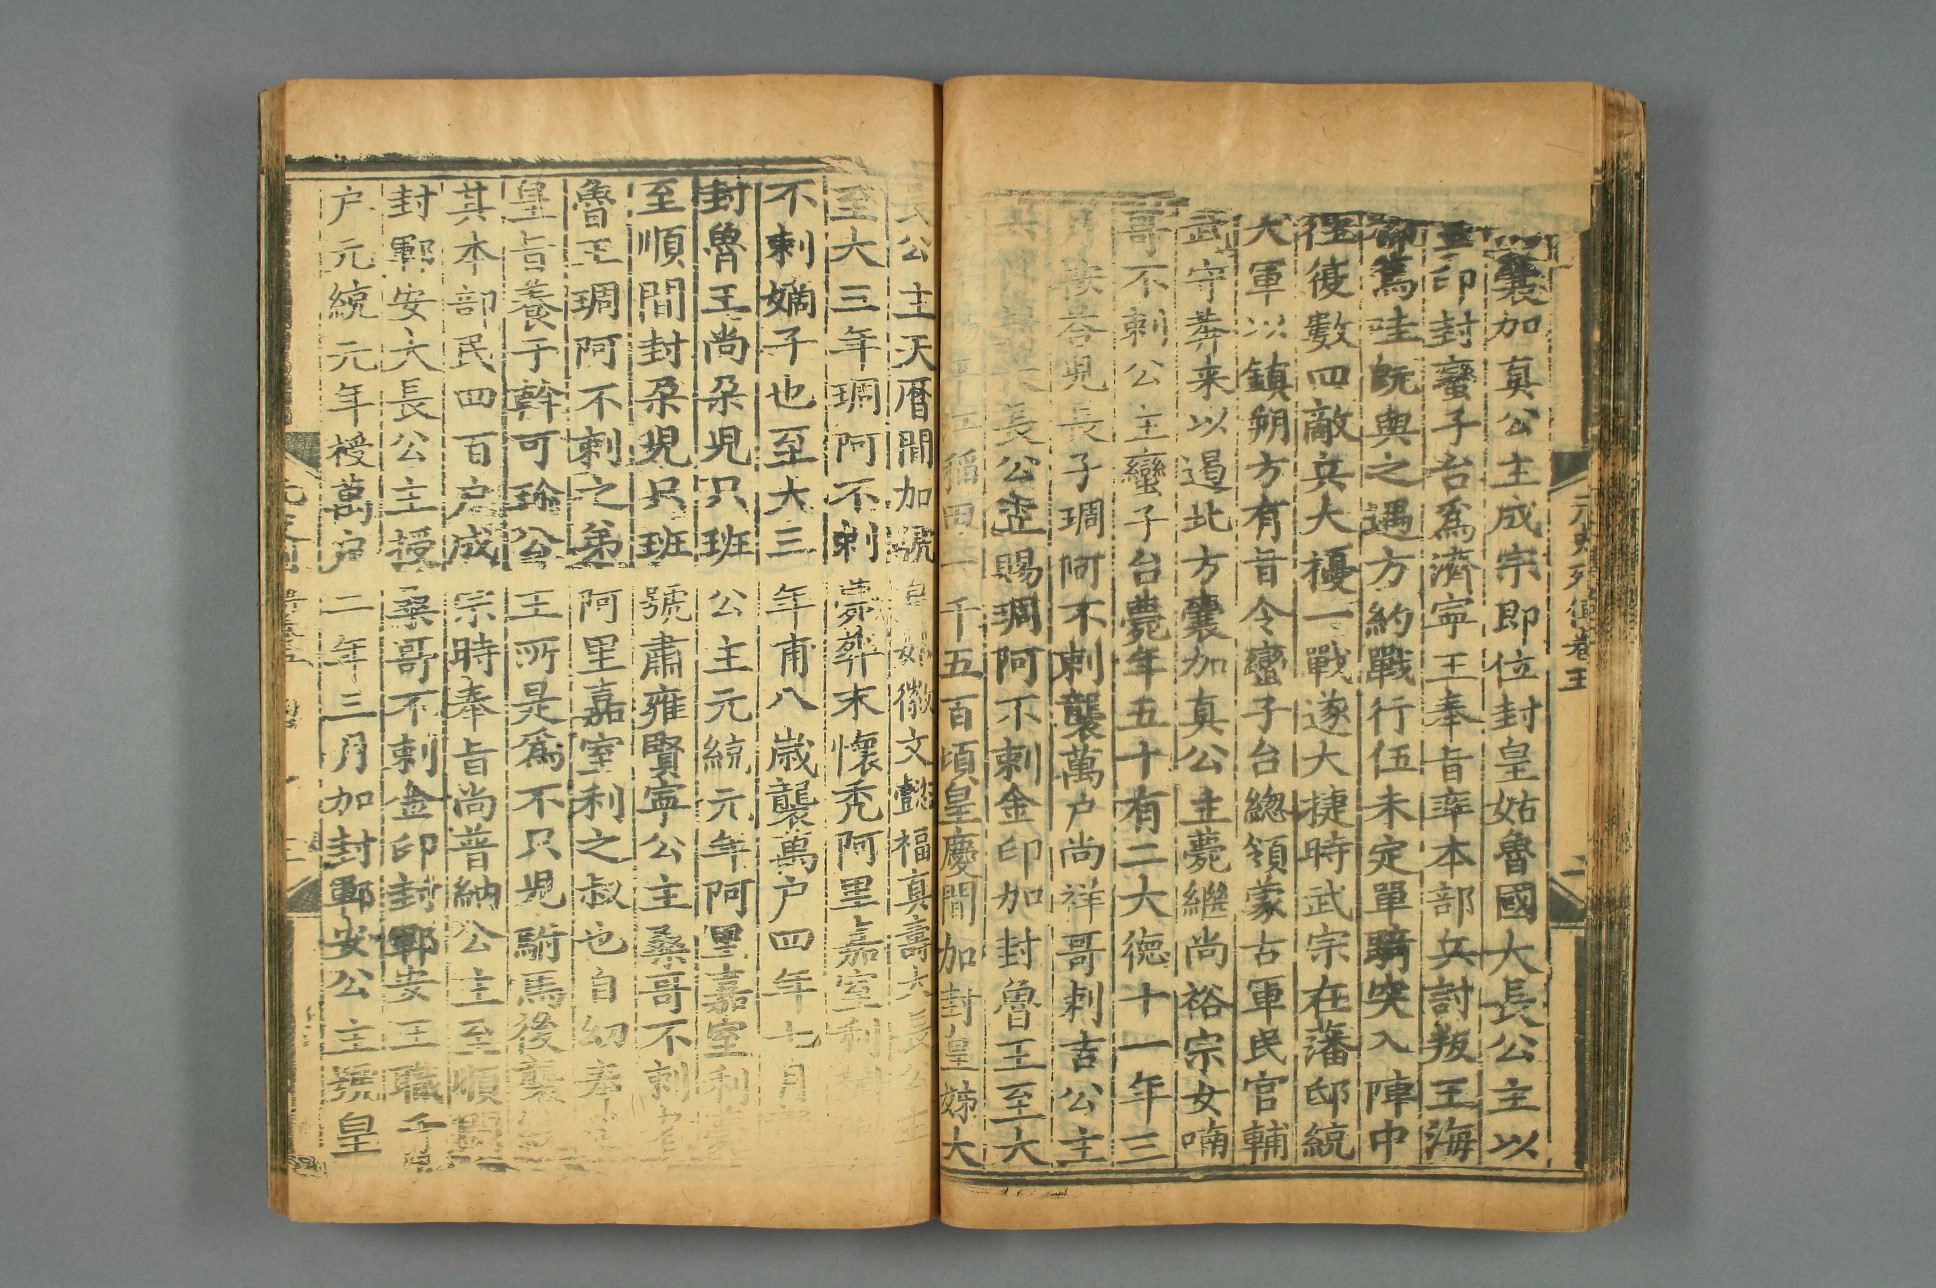 元史列傳卷五
囊加真公主成宗即位封皇姑魯國大長公主以
印封蠻子台爲濟寧王奉旨率本部兵討叛王海
都篤哇旣與之遇方約戰行伍未定單騎突入陣中
往復數四敵兵大擾一戰遂大捷時武宗在藩邸統
大軍以鎮朔方有旨令蠻子台總領蒙古軍民官輔
武守莽來以遏北方囊加真公主薨繼尚裕宗女喃
哥不剌公主蠻子台薨年五十有二大德十一年三
月安荅兒長子琱阿不剌襲萬户尚祥哥剌吉公主
長公主賜琱阿不剌金印加封魯王至大
稻田一千五百頃皇慶間加封皇姊大
長公主天曆間加號皇姑徽文懿福真壽大長公主
至大三年琱阿不剌薨葬末懷禿阿里嘉室利
不剌嫡子也至大三年甫八歲襲萬户四年七月
封魯王尚朶兒只班公主元統元年阿里嘉室利薨
至順間封朶兒只班號肅雍賢寧公主桑哥不剌
魯王琱阿不剌之弟阿里嘉室利之叔也自幼奉
皇旨養于斡可珍公主所是爲不只兒駙馬後襲
其本部民四百户成宗時奉旨尚普納公主至順間
封鄆安大長公主授桑哥不剌金印封鄆安王職千
户元統元年授萬户二年三月加封鄆安公主號皇